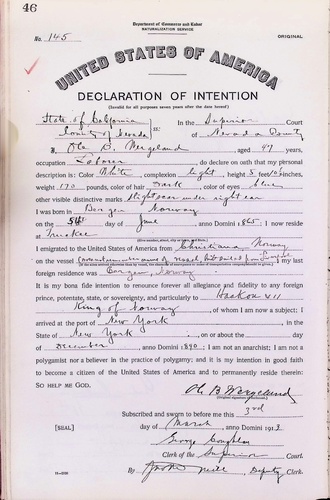 46
Department of Commerce and Labor
NATURALIZATION SERVICE
No. 145
ORIGINAL
UNITED STATES OF AMERICA
DECLARATION OF INTENTION
(Invalid for all purposes seven years after the date hereof)
State of California
County of Nevada
ss:
In the Superior Court
of Nevada County
I, Ole B. Wergeland, aged 47 years,
occupation Laborer, do declare on oath that my personal
description is: Color White, complexion light, height 5 feet inches,
weight 170 pounds, color of hair Dark, color of eyes blue
other visible distinctive marks slight scar under right ear
I was born in Bergen Norway
on the day of June, anno Domini 1865; I now reside
at Truckee
I emigrated to the United States of America from Christiania, Norway
on the vessel name of vessel; my last
foreign residence was Bergen, Norway
It is my bona fide intention to renounce forever all allegiance and fidelity to any foreign
prince, potentate, state, or sovereignty, and particularly to Haakon VII
King of Norway, of whom I am now a subject; I
arrived at the port of New York, in the
State of New York, on or about the day
of December, anno Domini 1890; I am not an anarchist; I am not a
polygamist nor a believer in the practice of polygamy; and it is my intention in good faith
to become a citizen of the United States of America and to permanently reside therein:
SO HELP ME GOD.
Ole B Wergeland
(Original signature of declarant.)
Subscribed and sworn to before me this 3rd
[SEAL]
day of March, anno Domini 1913
George Coughlan
Clerk of the Superior Court.
By, Deputy Clerk.